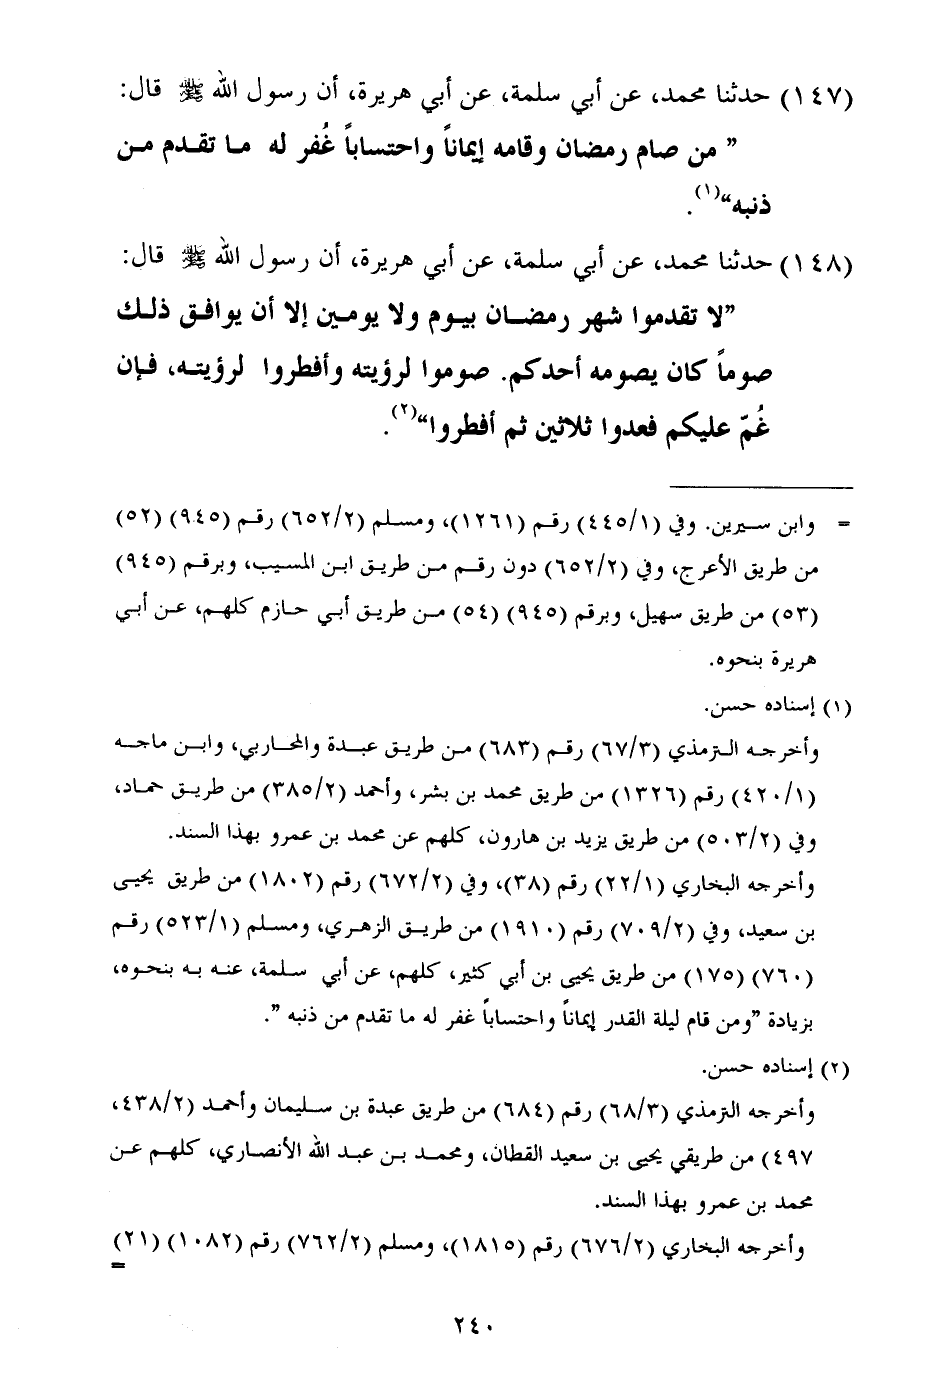 (١٤٧) حدثنا محمد، عن أبي سلمة، عن أبي هريرة، أن رسول الله ﷺ قال:
” من صام رمضان وقامه إيماناً واحتساباً غُفر له ما تقدم من
ذنبه“(١).
(١٤٨) حدثنا محمد، عن أبي سلمة، عن أبي هريرة، أن رسول الله ﷺ قال:
”لا تقدموا شهر رمضان بيوم ولا يومين إلا أن يوافق ذلك
صوماً كان يصومه أحدكم. صوموا لرؤيته وأفطروا لرؤيته، فإن
غُمّ عليكم فعدوا ثلاثين ثم أفطروا“(٢).
= وابن سيرين. وفي (٤٤٥/١) رقم (١٢٦١)، ومسلم (٦٥٢/٢) رقم (٩٤٥) (٥٢)
من طريق الأعرج، وفي (٦٥٢/٢) دون رقم من طريق ابن المسيب، وبرقم (٩٤٥)
(٥٣) من طريق سهيل، وبرقم (٩٤٥) (٥٤) من طريق أبي حازم كلهم، عن أبي
هريرة بنحوه.
(١) إسناده حسن.
وأخرجه الترمذي (٦٧/٣) رقم (٦٨٣) من طريق عبدة والمحاربي، وابن ماجه
(٤٢٠/١) رقم (١٣٢٦) من طريق محمد بن بشر، وأحمد (٣٨٥/٢) من طريق حماد،
وفي (٥٠٣/٢) من طريق يزيد بن هارون، كلهم عن محمد بن عمرو بهذا السند.
وأخرجه البخاري (٢٢/١) رقم (٣٨)، وفي (٦٧٢/٢) رقم (١٨٠٢) من طريق يحيى
بن سعيد، وفي (٧٠٩/٢) رقم (١٩١٠) من طريق الزهري، ومسلم (٥٢٣/١) رقم
(٧٦٠) (١٧٥) من طريق يحيى بن أبي كثير، كلهم، عن أبي سلمة، عنه به بنحوه،
بزيادة ”ومن قام ليلة القدر إيماناً واحتساباً غفر له ما تقدم من ذنبه ”.
(٢) إسناده حسن.
وأخرجه الترمذي (٦٨/٣) رقم (٦٨٤) من طريق عبدة بن سليمان وأحمد (٤٣٨/٢،
٤٩٧) من طريقي يحيى بن سعيد القطان، ومحمد بن عبد الله الأنصاري، كلهم عن
محمد بن عمرو بهذا السند.
وأخرجه البخاري (٦٧٦/٢) رقم (١٨١٥)، ومسلم (٧٦٢/٢) رقم (١٠٨٢) (٢١)
=
٢٤٠